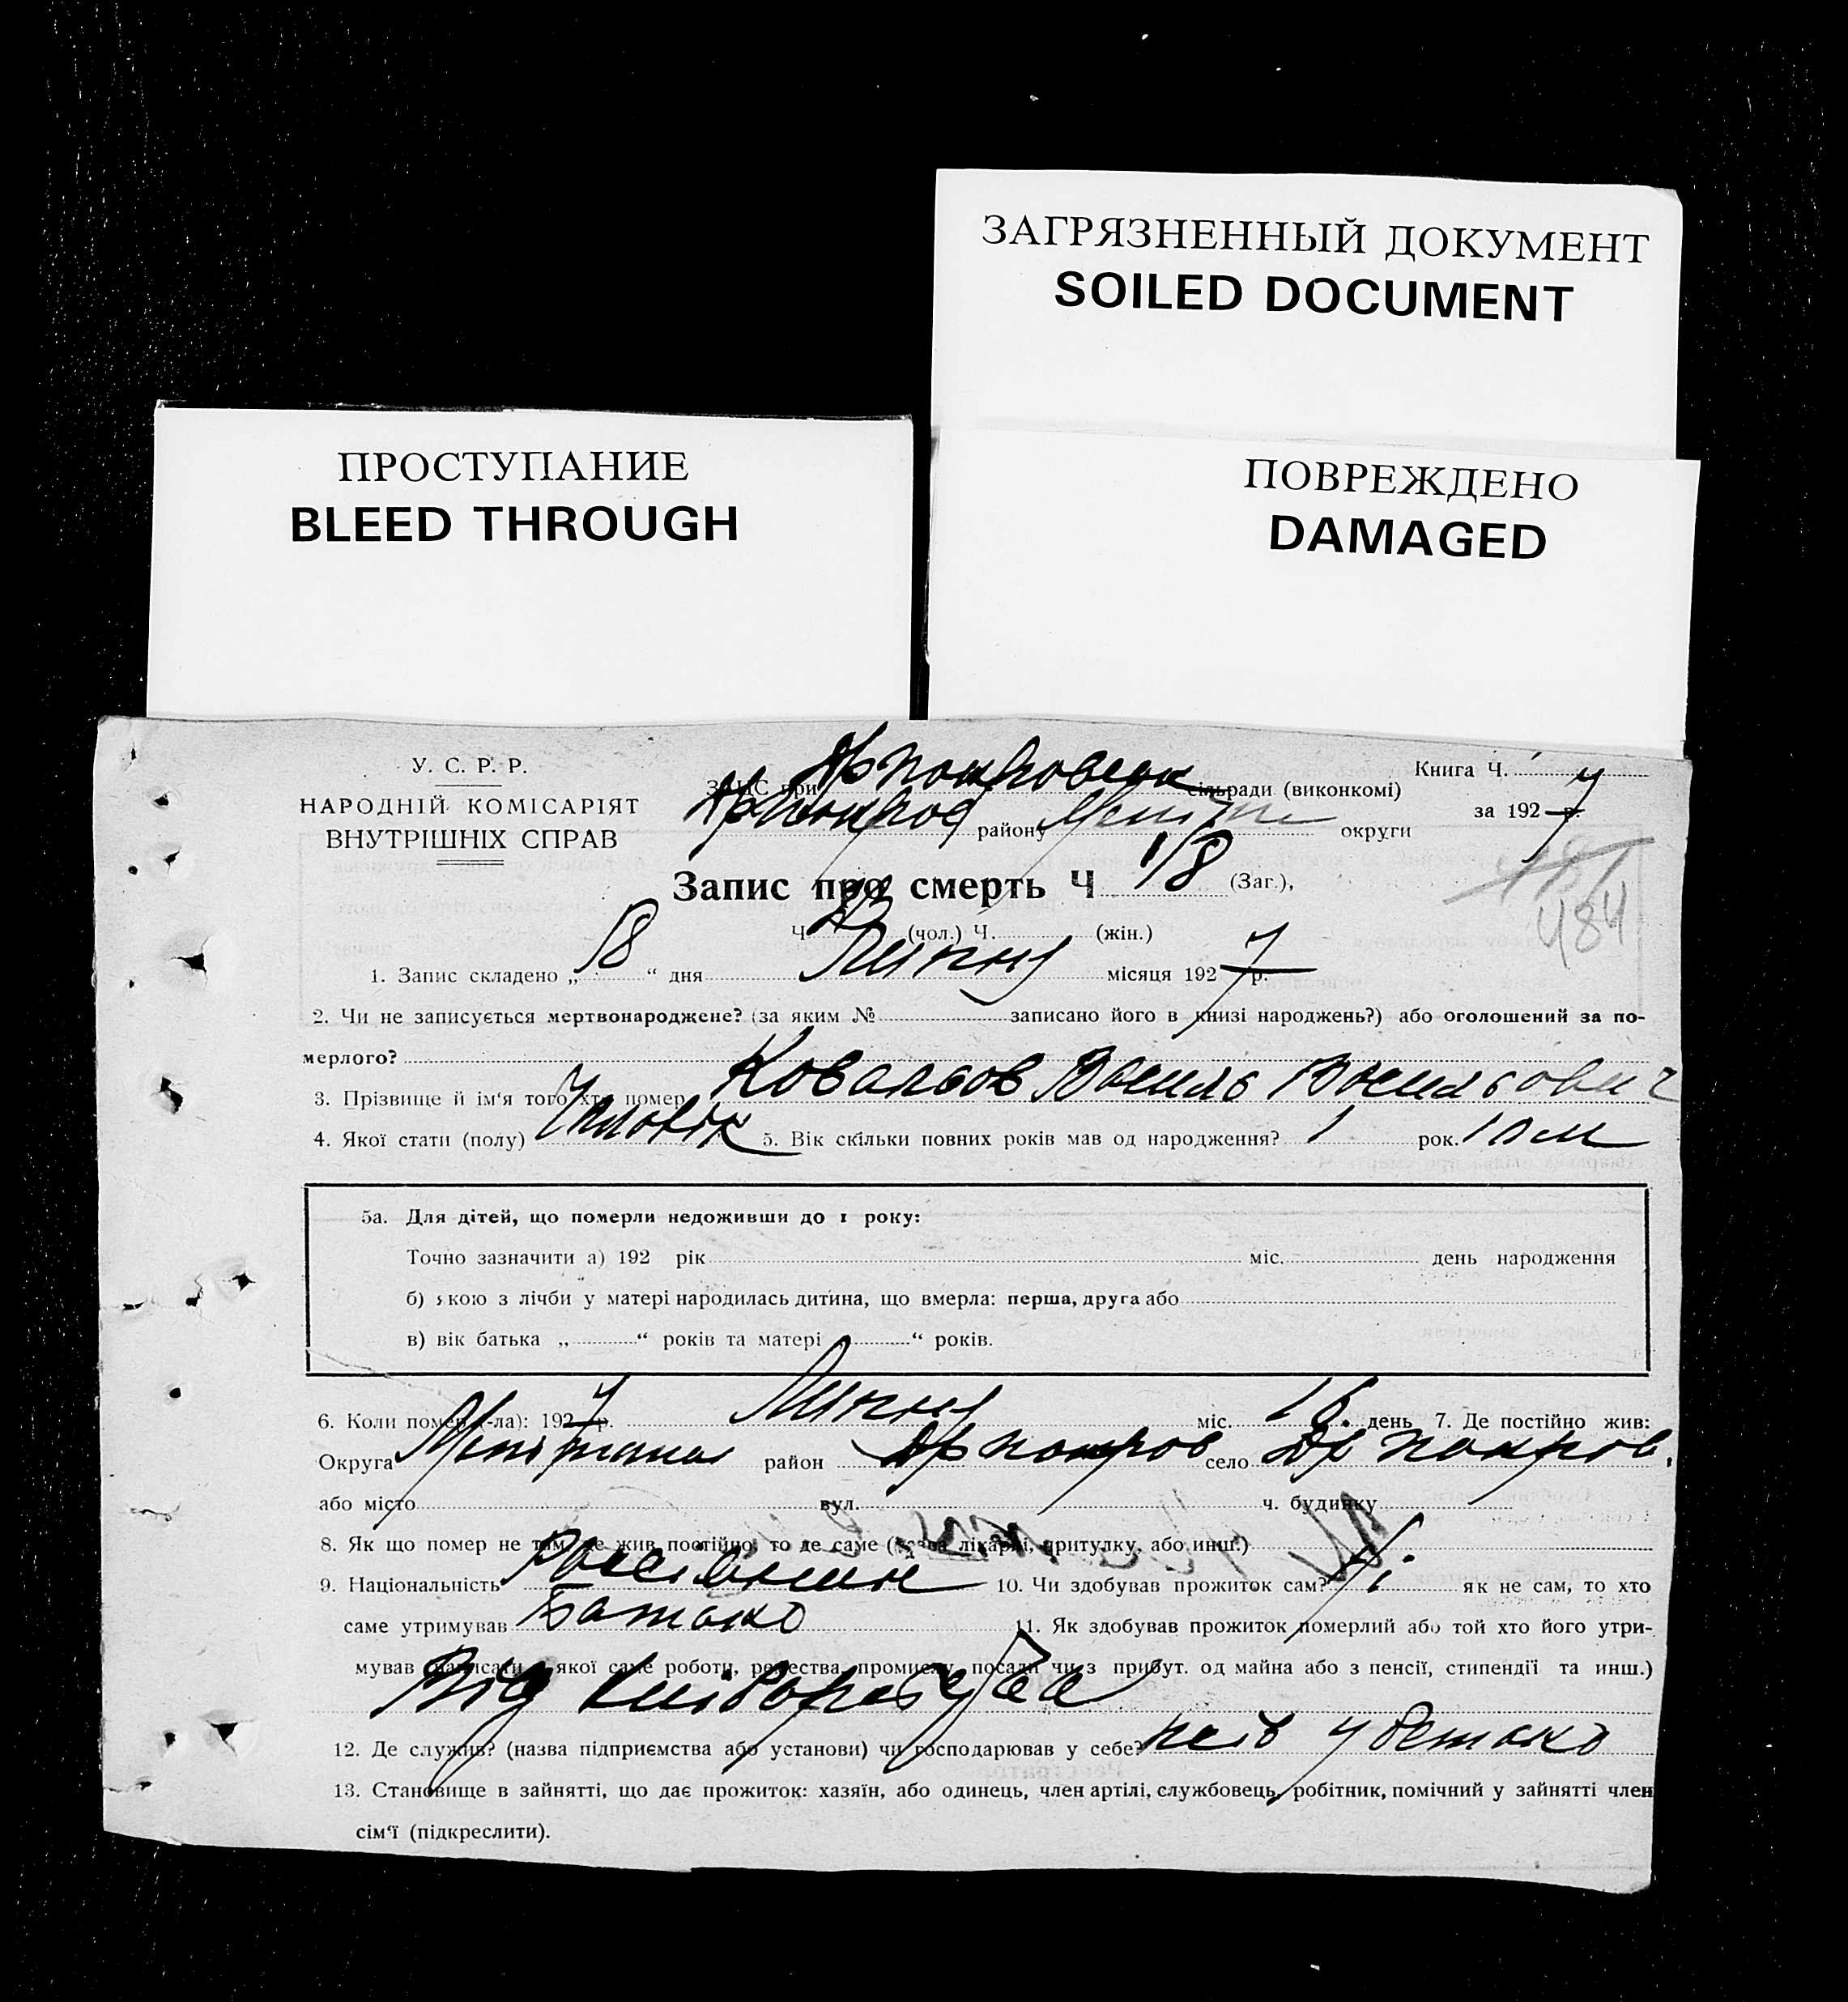 ЗАГРЯЗНЕННЫЙ ДОКУМЕНТ
SOILED DOCUMENT
ПРОСТУПАНИЕ
BLEED THROUGH
ПОВРЕЖДЕНО
DAMAGED
У. С. Р. Р.
НАРОДНІЙ КОМІСАРІЯТ
ВНУТРІШНІХ СПРАВ
ЗАГС при сільради (виконкомі)
району округи
Книга Ч.
за 1927 р.
Запис про смерть Ч 18 (Заг.),
484
Ч (чол.) Ч. (жін.)
1. Запис складено „ 18 “ дня Липня місяця 1927 р.
2. Чи не записується мертвонароджене? (за яким № записано його в книзі народжень?) або оголошений за по-
мерлого?
3. Прізвище й ім'я того хто помер Ковальов Василь Васильович
4. Якої стати (полу) Чоловік 5. Вік скільки повних років мав од народження? 1 рок. 10 м
5а. Для дітей, що померли недоживши до 1 року:
Точно зазначити а) 192 рік міс. день народження
б) якою з лічби у матері народилась дитина, що вмерла: перша, друга або
в) вік батька „ “ років та матері „ “ років.
6. Коли помер (-ла): 1927 р. Липня міс. день 7. Де постійно жив:
Округа район село
або місто вул. ч. будинку
8. Як що помер не там, де жив постійно, то де саме (назва лікарні, притулку, або инш.)
9. Національність 10. Чи здобував прожиток сам? Ні як не сам, то хто
саме утримував Батько 11. Як здобував прожиток померлий або той хто його утри-
мував (написати з якої саме роботи, ремества, промислу, посади чи з прибут. од майна або з пенсії, стипендії та инш.)
Від
12. Де служив? (назва підприємства або установи) чи господарював у себе?
13. Становище в зайнятті, що дає прожиток: хазяїн, або одинець, член артілі, службовець, робітник, помічний у зайнятті член
сім'ї (підкреслити).